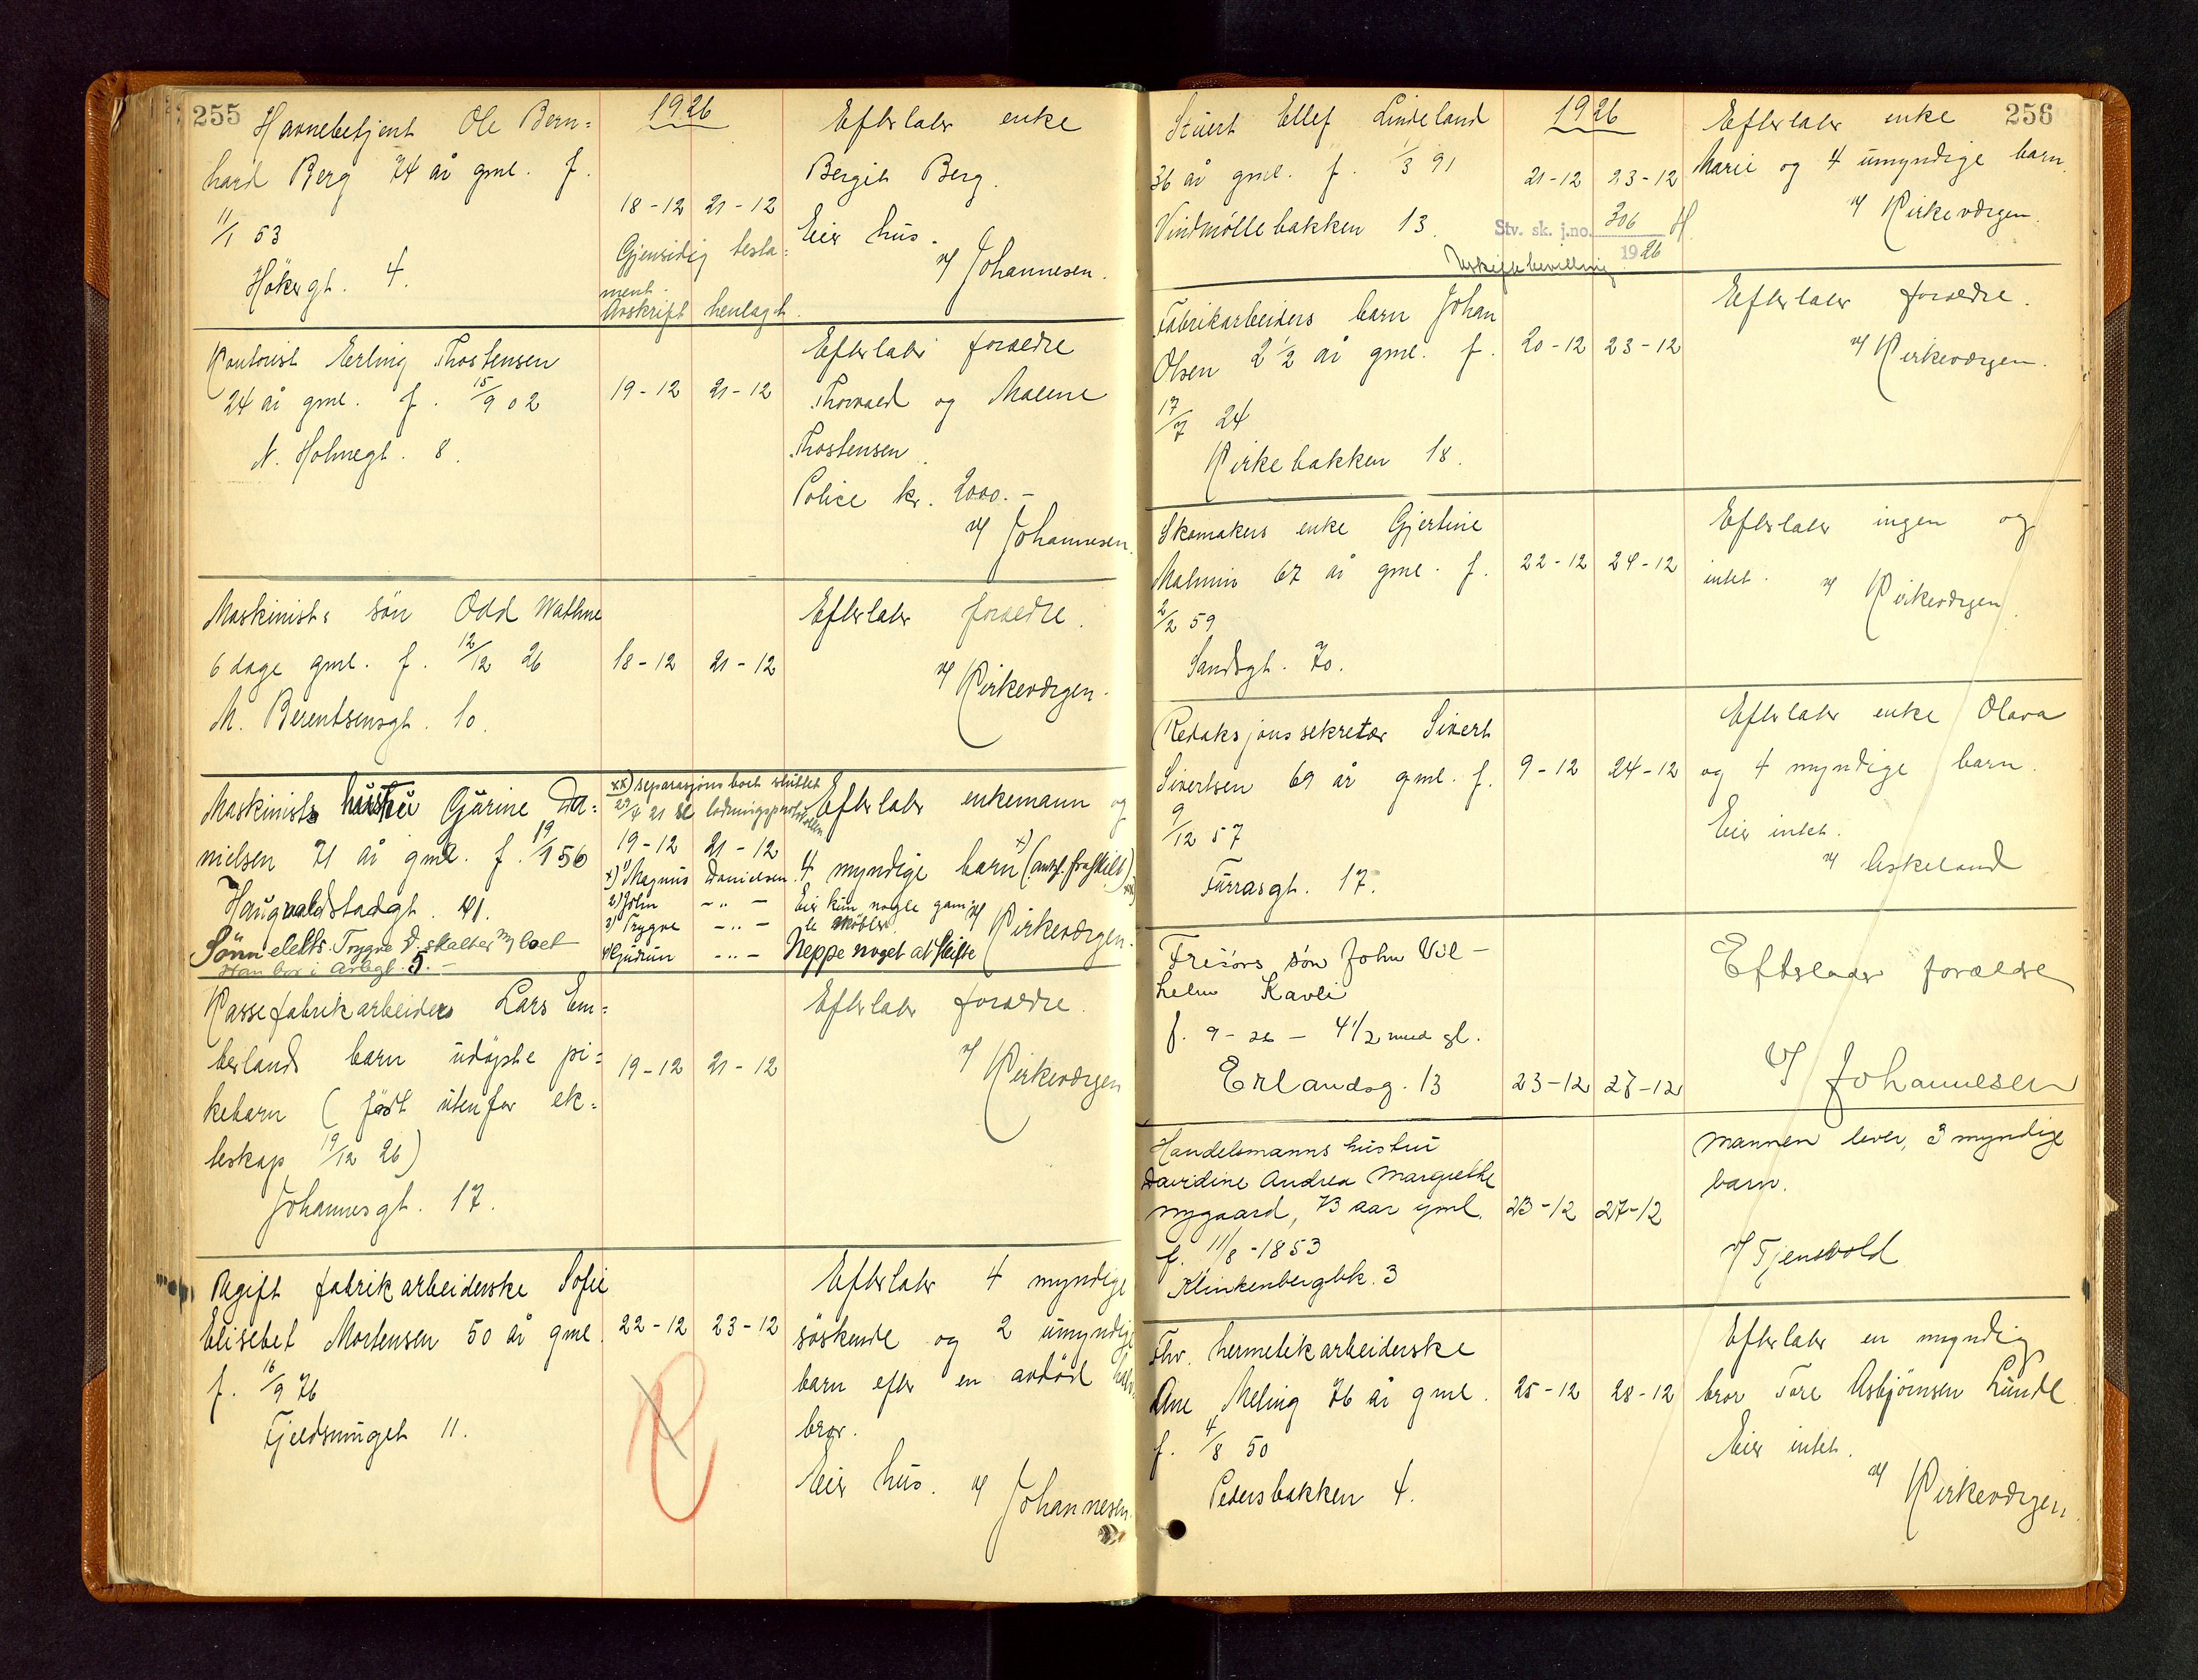 255
1926
Havnebetjent Ole Bern=
hard Berg 74 år gml. f.
11/1 53
Høkergt. 4.
18-12 21-12
Gjensidig testa=
ment.
Avskrift henlagt.
Efterlater enke
Bergit Berg.
Eier hus.
v/ Johannesen.
Kontorist Erling Thostensen
24 år gml. f. 15/9 02
N. Holmegt. 8.
19-12 21-12
Efterlater forældre
Thorvald og Malene
Thostensen.
Police kr. 2000.-
v/ Johannesen.
Maskinists søn Odd Wathne
6 dage gml. f. 12/12 26
M. Berentsensgt. 10.
18-12 21-12
Efterlater forældre.
v/ Kirkeværgen.
Maskinists hustru Gjurine Da=
nielsen 71 år gml. f. 19/1 56
Haugvaldstadgt. 41.
Sønn eldts. Trygve D. skalter m/ boet
Han bor i Arbegt. 5.-
xx) separasjonsboet sluttet
29/4 21 se lodningsprotokollen
19-12 21-12
x) 1) Magnus Danielsen
2) John -..-
3) Trygve -..-
4) Gudrun -..-
Efterlater enkemann og
4 myndige barn x) (antgl. fraskilt) xx)
Eier kun nogle gam=
le møbler. v/ Kirkeværgen.
Neppe noget at skifte
Kassefabrikarbeider Lars Em=
berlands barn udøpte pi=
kebarn (født utenfor ek=
teskap 19/12 26)
Johannesgt. 17.
19-12 21-12
Efterlater forældre.
v/ Kirkeværgen
Ugift fabrikarbeiderske Sofie
Elisebet Mortensen 50 år gml.
f. 16/9 76
Fjeldsmuget 11.
22-12 23-12
Efterlater 4 myndige
søskende og 2 umyndige
barn efter en avdød halv
bror.
Eier hus. v/ Johannesen.
256
1926
Stuert Ellef Lindeland
36 år gml. f. 1/3 91
Vindmøllebakken 13.
21-12 23-12
Stv. sk. j.no. 306 H.
1926
Uskiftebevilling
Efterlater enke
Marie og 4 umyndige barn.
v/ Kirkeværgen.
Fabrikarbeiders barn Johan
Olsen 2 1/2 år gml. f.
17/7 24
Kirkebakken 18.
20-12 23-12
Efterlater forældre.
v/ Kirkeværgen.
Skomakers enke Gjertine
Malmin 67 år gml. f.
2/2 59
Sandsgt. 70.
22-12 24-12
Efterlater ingen og
intet. v/ Kirkeværgen.
Redaksjonssekretær Sivert
Sivertsen 69 år gml. f.
9/12 57
Furrasgt. 17.
9-12 24-12
Efterlater enke Olava
og 4 myndige barn.
Eier intet.
v/ Askeland
Frisørs søn John Vil-
helm Kavli
f. 9-26 - 4 1/2 mnd gl.
Erlandsg. 13
23-12 27-12
Efterlader forældre
v/ Johannesen
Handelsmanns hustru
Davidine Andrea Margrethe
Nygaard, 73 aar gml.
f. 11/8-1853
Klinkenbergbk. 3
23-12 27-12
Mannen lever, 3 myndige
barn.
v/ Tjensvold
Fhv. hermetikarbeiderske
Ane Meling 76 år gml.
f. 4/8 50
Pedersbakken 4.
25-12 28-12
Efterlater en myndig
bror Tore Asbjørnsen Lunde.
Eier intet.
v/ Kirkeværgen.